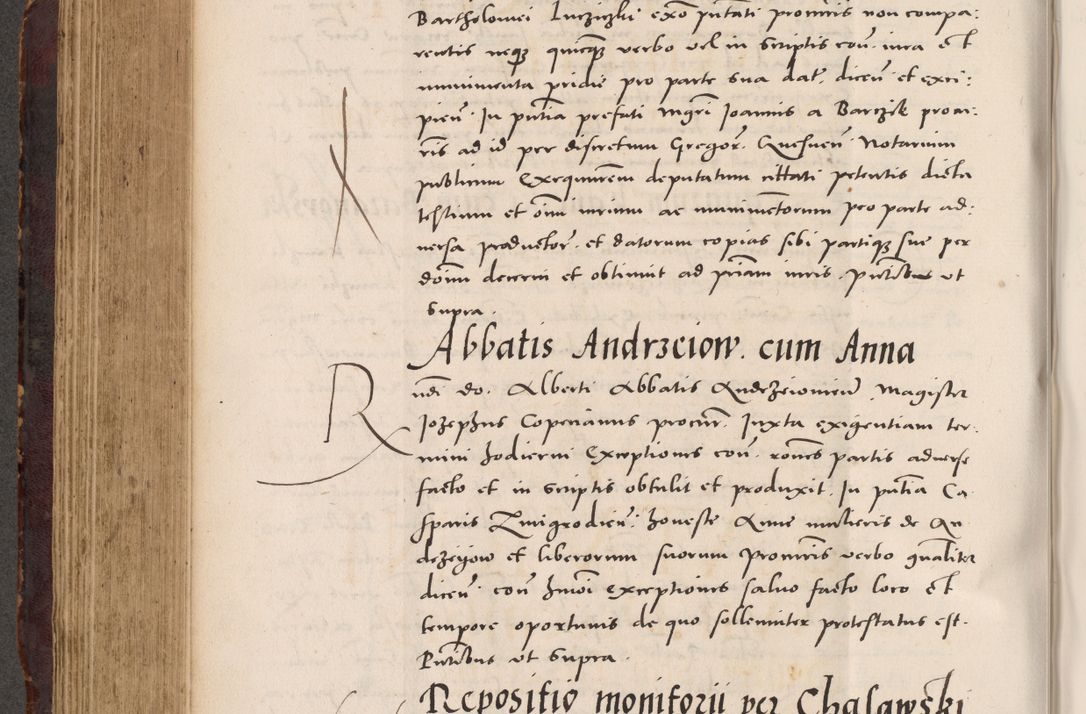 Bartholomei Luczyczki exo putati procuris non compa:
rentis neqȝ quicqȝ verbo vel in scriptis con. iura et
munimenta pridie pro parte sua dat. dicen̄ et exci:
pien̄. In pn̄tia prefati mgri Joannis a Barczik procu:
ris ad id per discretum Gregor. Notarium
publicum deputatum citati petentis dicta
testium et oīm iurium ac munimētorum pro parte ad:
versa productor. et datorum copias sibi partiqȝ sue per
doīm decerni et obtinuit ad pn̄am iuris. Pn̄tibus vt
supra.
Abbatis Andrzeiow. cum Anna
Rn̄di do. Alberti Abbatis Andrzeiouien̄. Magister
Jozephus Coperanus procur̄. Juxta exigentiam ter:
mini hodierni Exceptiones con̄. ron̄es partis adverse
facto et in scriptis obtulit et produxit. In pn̄tia Ca
sparis Zmigrodien̄. honeste Anne mulieris de An
drzeyow et liberorum suorum Procur̄is verbo gn̄aliter
dicen̄. con̄ hm̄oi exceptiones salvo facto loco et
tempore oportunis de quo sollenniter protestatus est.
Pn̄tibus vt supra.
Repositio monitorii per Chalawski